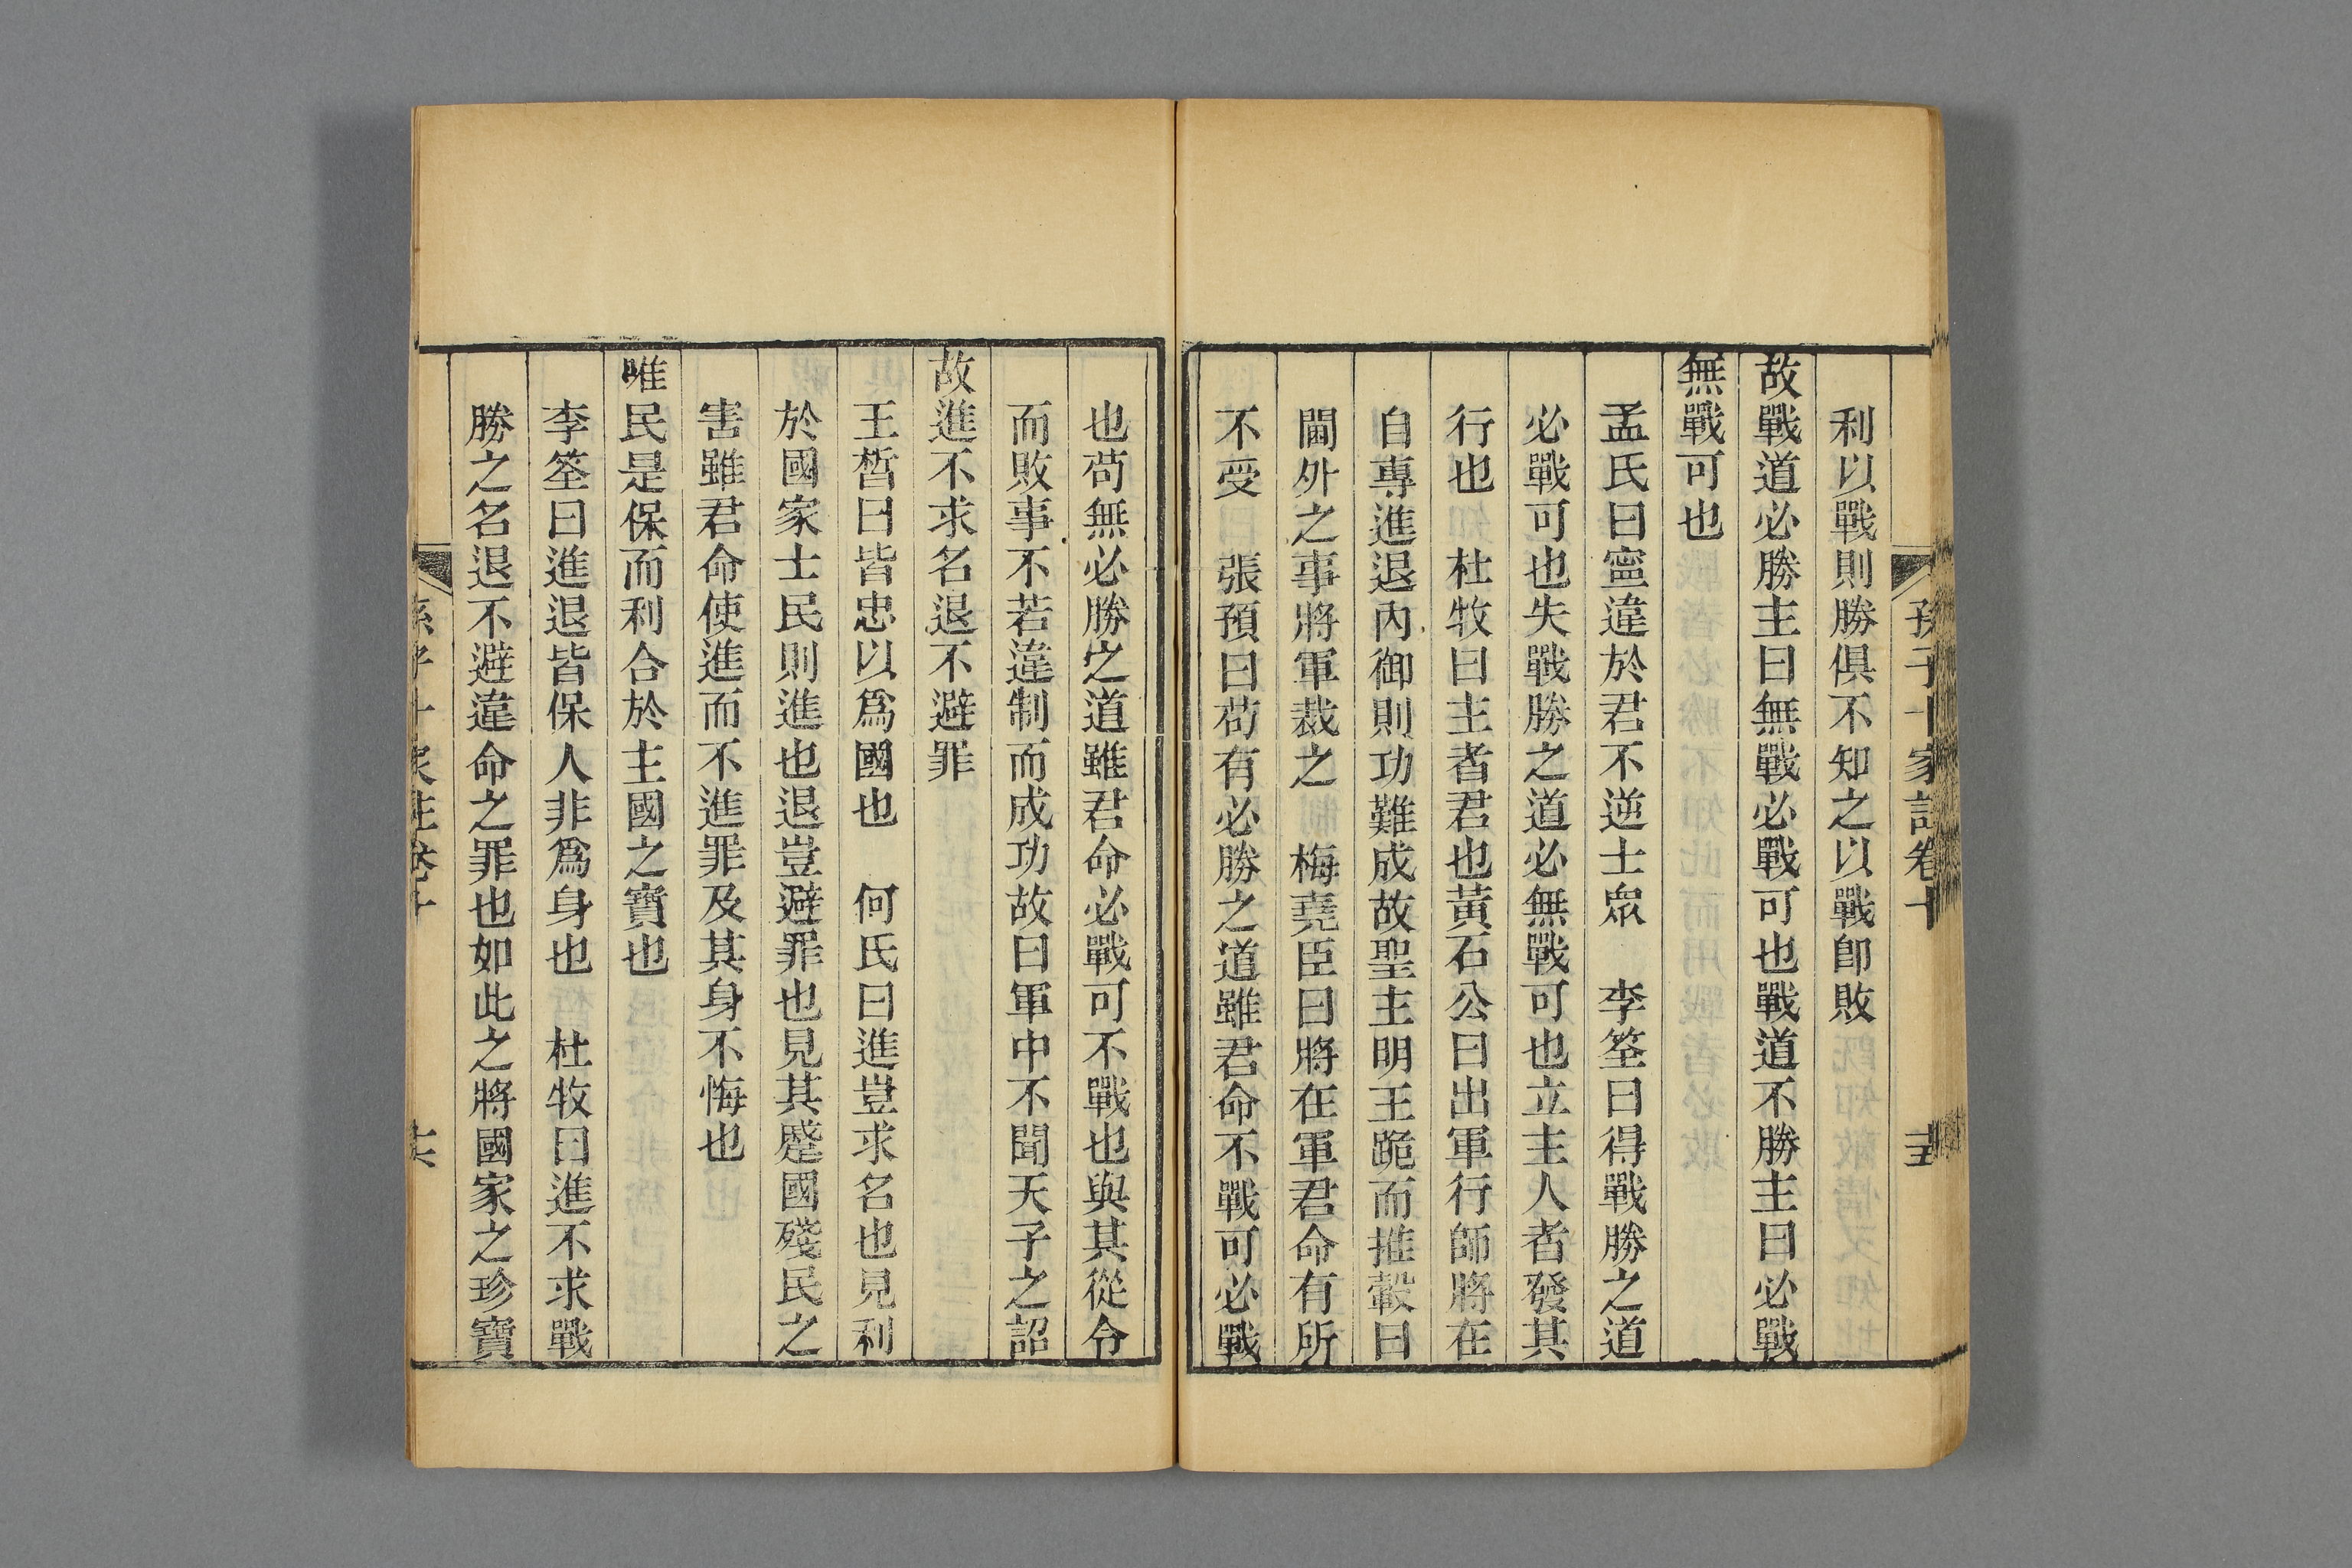 孫子十家註卷十 十五
利以戰則勝俱不知之以戰卽敗
故戰道必勝主曰無戰必戰可也戰道不勝主曰必戰
無戰可也
孟氏曰寧違於君不逆士眾 李筌曰得戰勝之道
必戰可也失戰勝之道必無戰可也立主人者發其
行也 杜牧曰主者君也黃石公曰出軍行師將在
自專進退內御則功難成故聖主明王跪而推轂曰
閫外之事將軍裁之 梅堯臣曰將在軍君命有所
不受 張預曰苟有必勝之道雖君命不戰可必戰
也苟無必勝之道雖君命必戰可不戰也與其從令
而敗事不若違制而成功故曰軍中不聞天子之詔
故進不求名退不避罪
王晳曰皆忠以爲國也 何氏曰進豈求名也見利
於國家士民則進也退豈避罪也見其蹙國殘民之
害雖君命使進而不進罪及其身不悔也
唯民是保而利合於主國之寶也
李筌曰進退皆保人非爲身也 杜牧曰進不求戰
勝之名退不避違命之罪也如此之將國家之珍寶